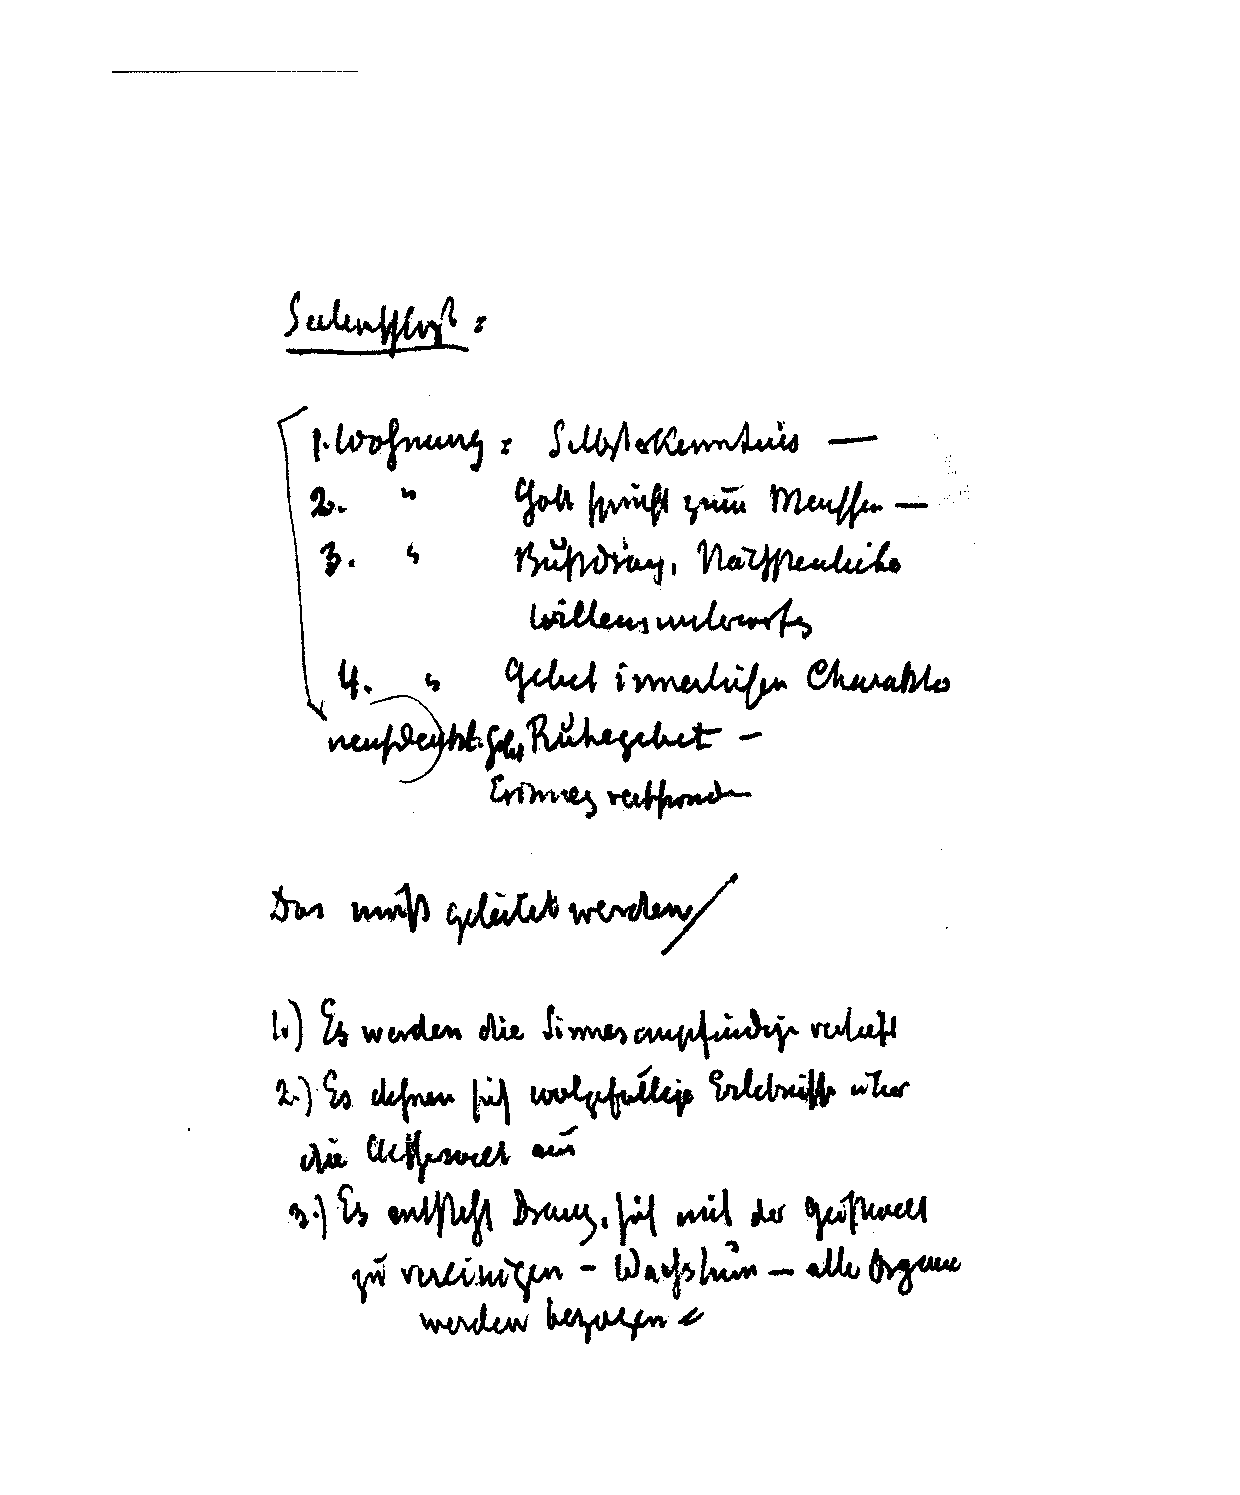 Seelenschloß:
1. Wohnung: Selbsterkenntnis —
2. " Gott spricht zum Menschen —
3. " Bußdrang, Nächstenliebe
Willensunterwerfg
4. " Gebet innerlichen Charakters
Ruhegebet —
Das muß geleitet werden /
1.) Es werden die Sinnesempfindge vertieft
2.) Es dehnen sich wolgefällige Erlebnisse über
die Aetherwelt aus
3.) Es entsteht Drang, sich mit der Geistwelt
zu vereinigen – Wachsthum – alle Organe
werden bezogen